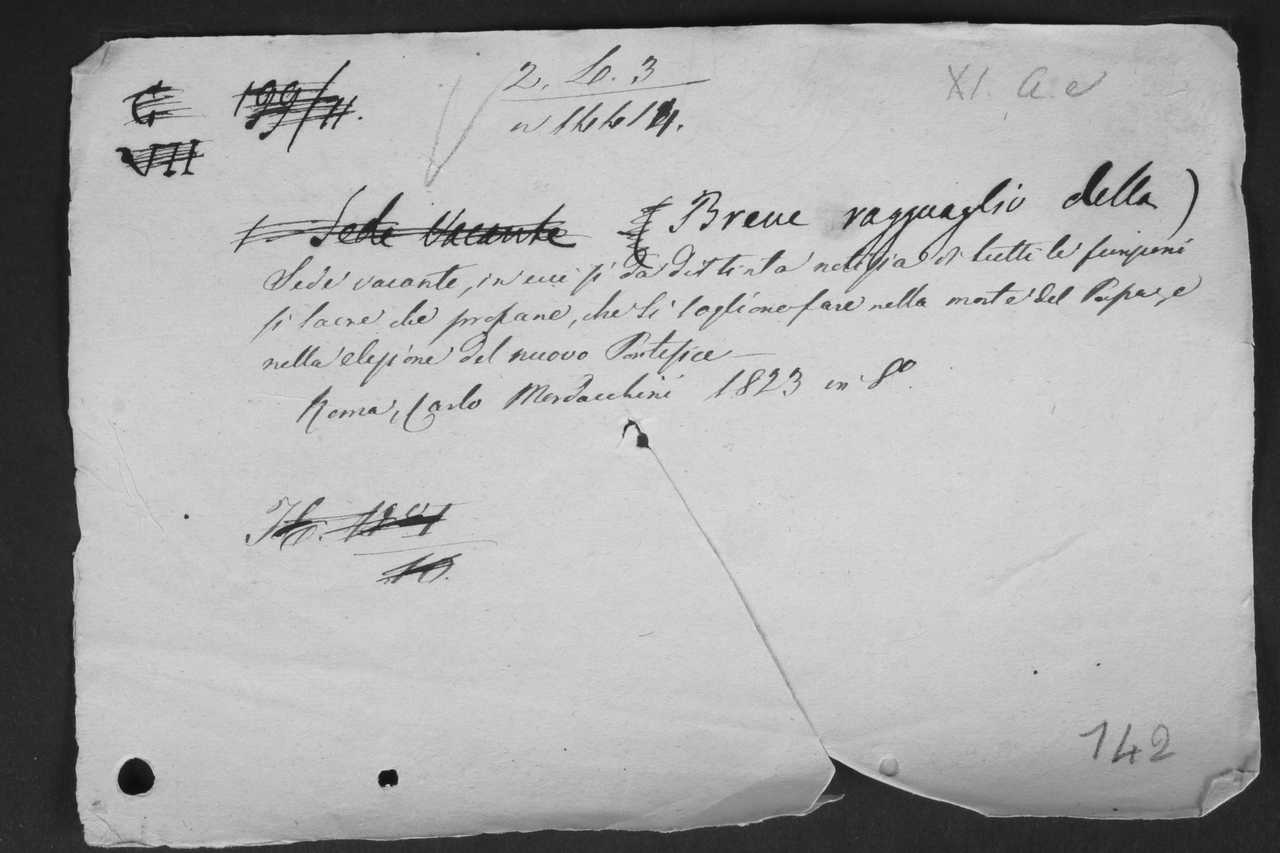 G 199/II. 2. L. 3 XI. a. e
VII n 16614.
1 Sede Vacante ( Breve ragguaglio della )
Sede vacante, in cui si dà distinta notizia di tutte le funzioni
si sacre che profane, che si sogliono fare nella morte del Papa, e
nella elezione del nuovo Pontefice
Roma, Carlo Mordacchini 1823 in 8º
10.
142